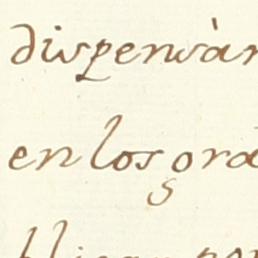 dispensàr
en los ora